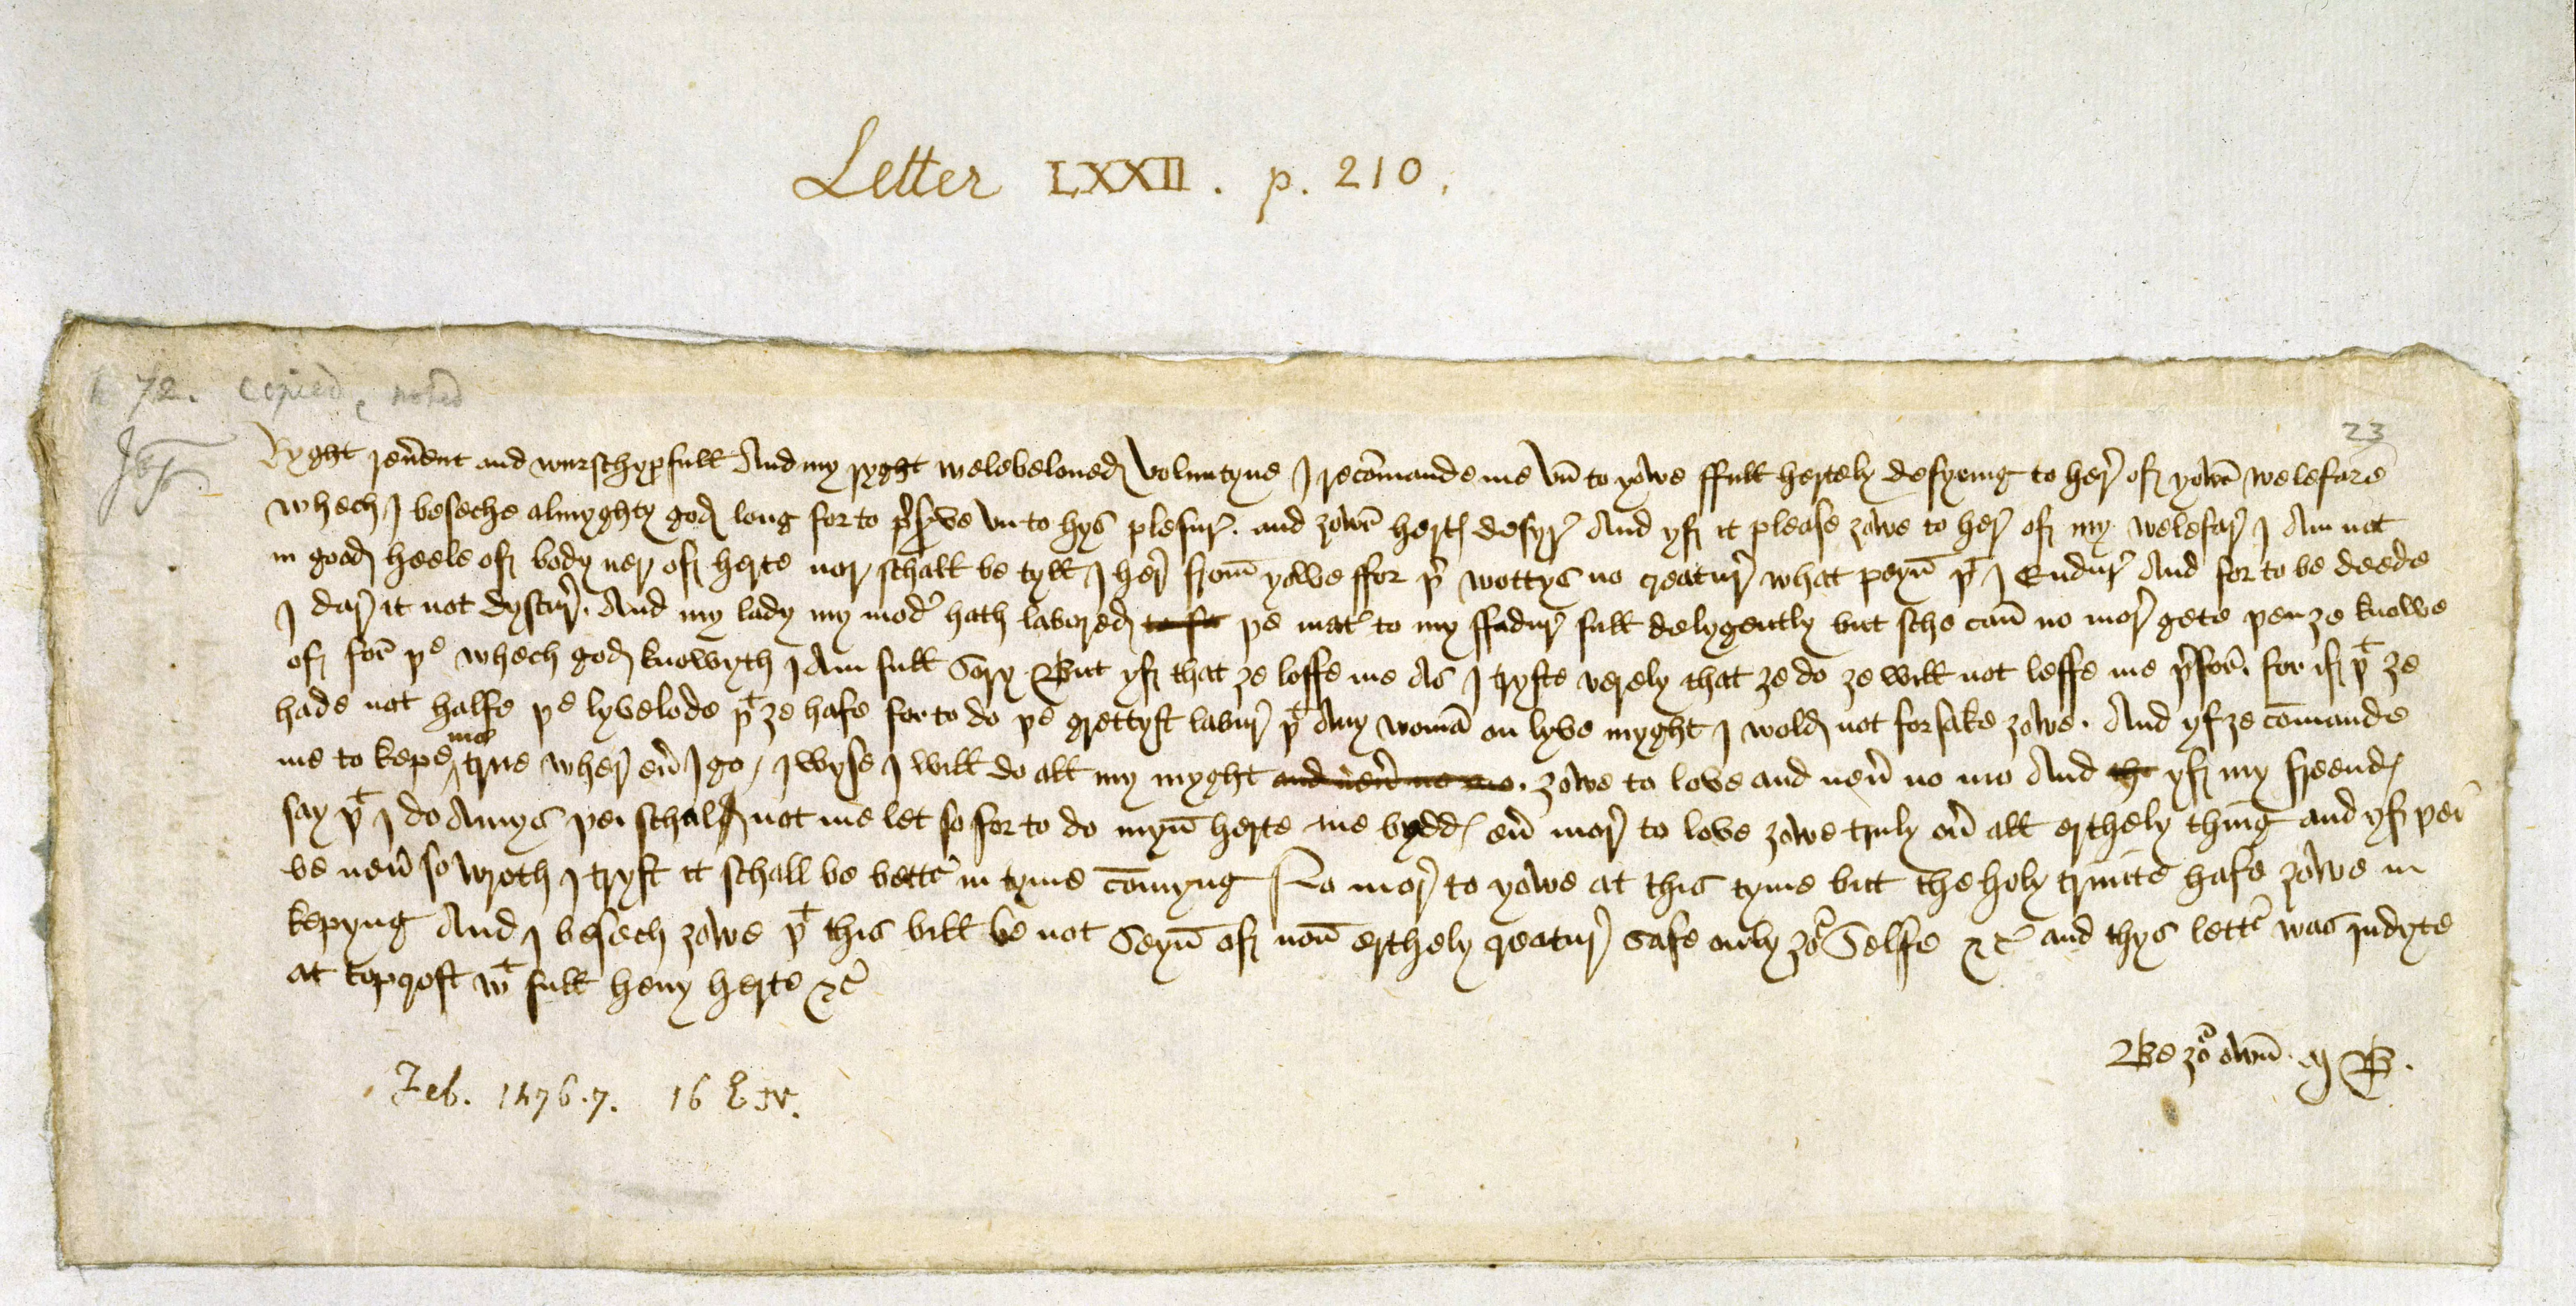 Letter LXXII. p. 210.
72. Copied, noted
23
Ryght reu̅ent and wurschypfull And my ryght welebeloued Voluntyne I reco̅mande me vn to yowe ffull hertely desyring to her̅ of yowr̅ welefare
Whech I beseche almyghty god long for to pr̅serve vn to hys plesur̅. and ȝowr̅ hertę desyr̅ And yf it please ȝowe to her̅ of my welefar̅ I Am not
in good heele of body ner of herte nor schall be tyll I her̅ from̅ yowe ffor þr̅ wottys no creatur̅ what peyn̅ þͭ I Endur̅ And for to be deede
I dar̅ it not dyscur̅. And my lady my modr̅ hath labored to ft þe matr̅ to my ffadur̅ full delygently but sche can̅ no mor̅ gete þen ȝe knowe
of for̅ þᵉ whech god knowyth I Am full Sory But yf that ȝe loffe me As I tryste verely that ȝe do ȝe will not leffe me þr̅for̅. for if þͭ ȝe
hade not halfe þᵉ lyvelode þͭ ȝe hafe for to do þᵉ grettyst labur̅ þͭ Any woma̅ on lyve myght I wold not forsake ȝowe. And yf ȝe co̅mande
me to kepe me true wher̅ eu̅ I go / I wyse I will do all my myght and neu̅ no mo. ȝowe to love and neu̅ no mo And tht yf my freendę
say þͭ I do Amys þei schal not me let so for to do myn̅ herte me byddę eu̅ mor̅ to love ȝowe truly ou̅ all erthely thing and yf þei
be neu̅ so wroth I tryst it schall be bettr̅ in tyme co̅myng No mor̅ to yowe at this tyme but the holy trinite hafe ȝowe in
kepyng And I besech ȝowe þͭ this bill be not Seyn̅ of non̅ erthely creatur̅ safe only ȝoʳ Selfe &c̅ and thys lettr̅ was indyte
at topcroft wͭ full heuy herte &c̅
Be ȝoʳ own̅ M B.
Feb. 1476.7. 16 E IV.